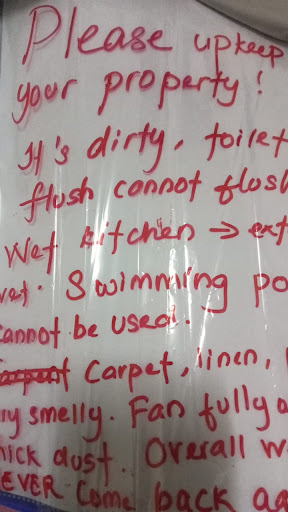 Please upkeep
your property!
It's dirty, toilet
flush cannot flush
Wet kitchen → ext
wet. Swimming po
cannot be used.
Carpet, linen,
ry smelly. Fan fully
hick dust. Overall w
EVER come back aga